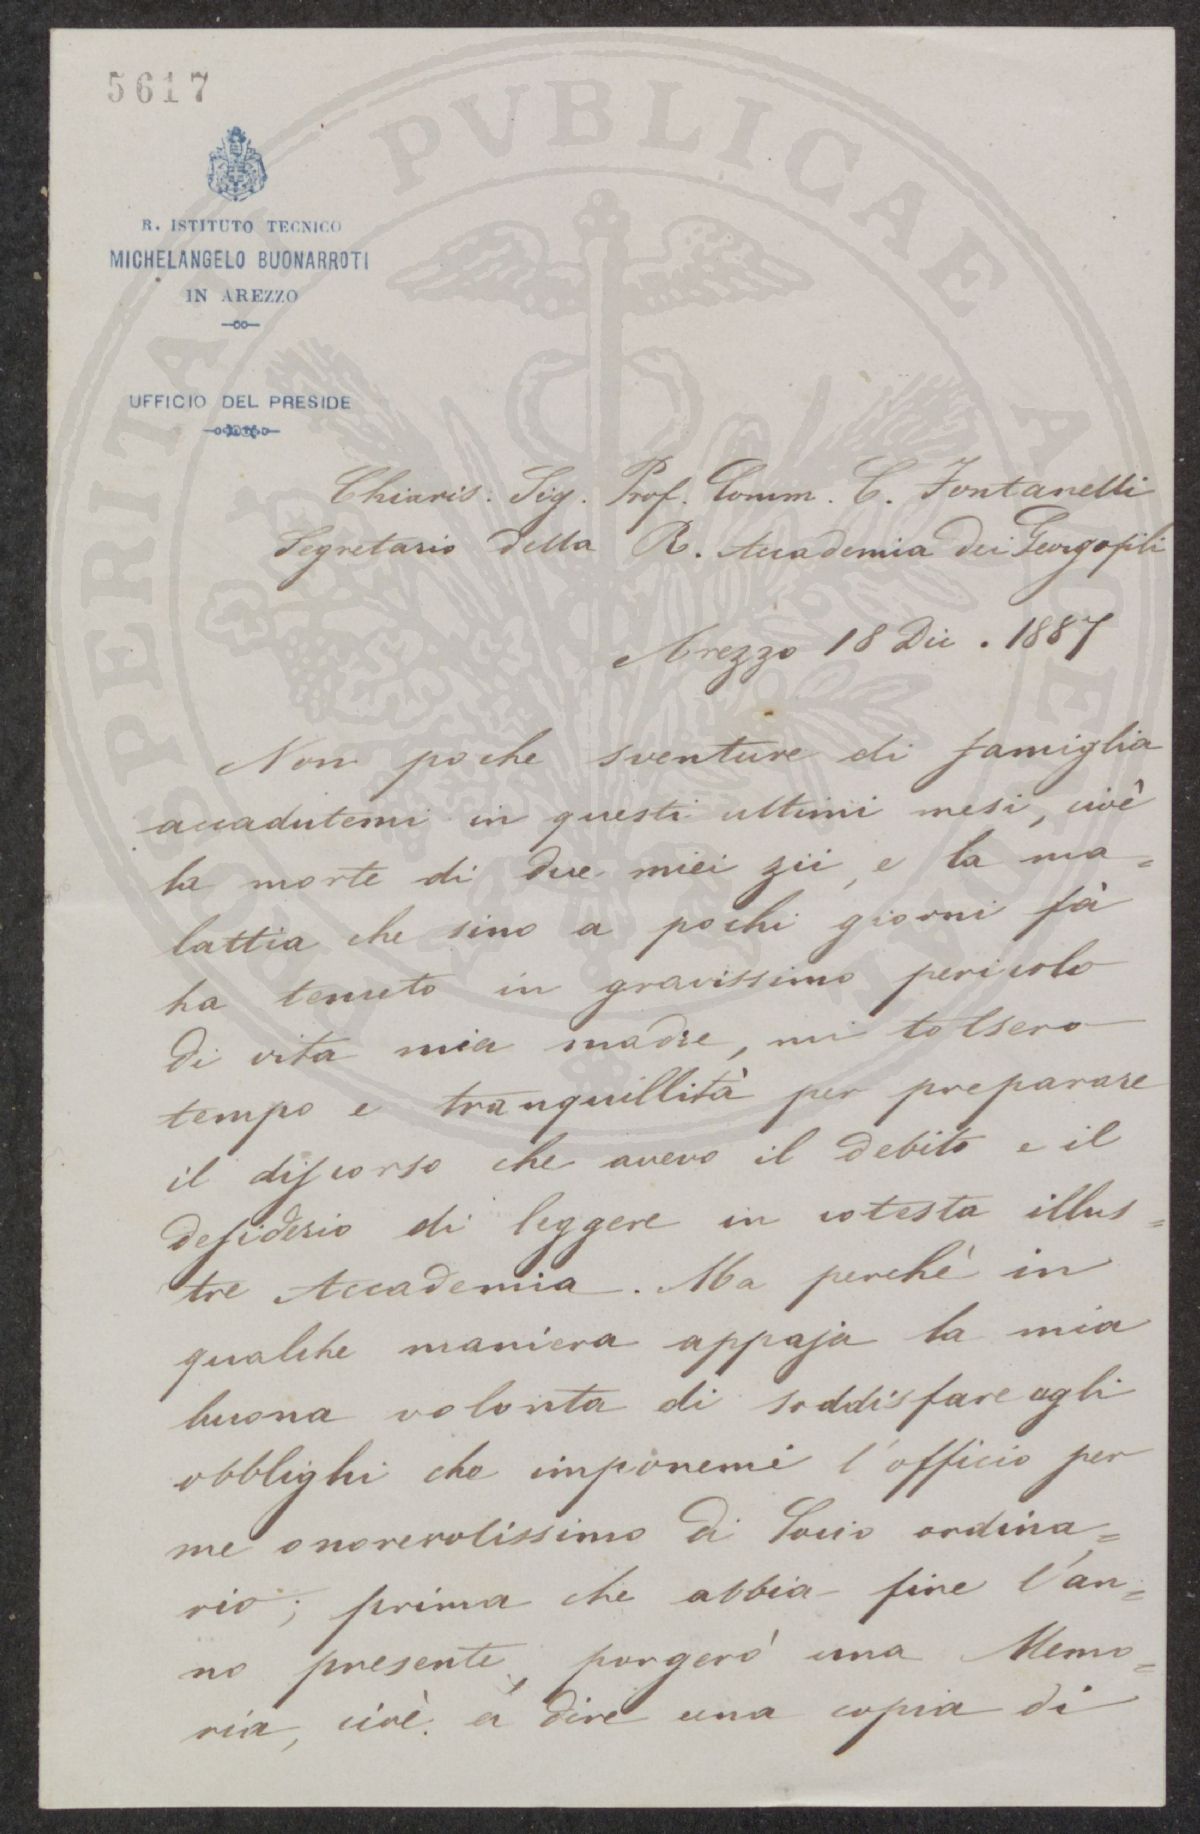 5617
R. ISTITUTO TECNICO
MICHELANGELO BUONARROTI
IN AREZZO
UFFICIO DEL PRESIDE
Chiaris. Sig. Prof. Comm. C. Fontanelli
Segretario della R. Accademia dei Georgofili
Arezzo 18 Dic. 1887
Non poche sventure di famiglia
accadutemi in questi ultimi mesi, cioè
la morte di due miei zii, e la ma=
lattia che sino a pochi giorni fà
ha tenuto in gravissimo pericolo
di vita mia madre, mi tolsero
tempo e tranquillità per preparare
il discorso che avevo il debito e il
desiderio di leggere in cotesta illus=
tre Accademia. Ma perchè in
qualche maniera appaja la mia
buona volonta di soddisfare agli
obblighi che imponemi l'officio per
me onorevolissimo di Socio ordina=
rio; prima che abbia fine l'an=
no presente, porgerò una Memo=
ria, cioè a dire una copia di
PROSPERITATI PVBLICAE AVGENDAE